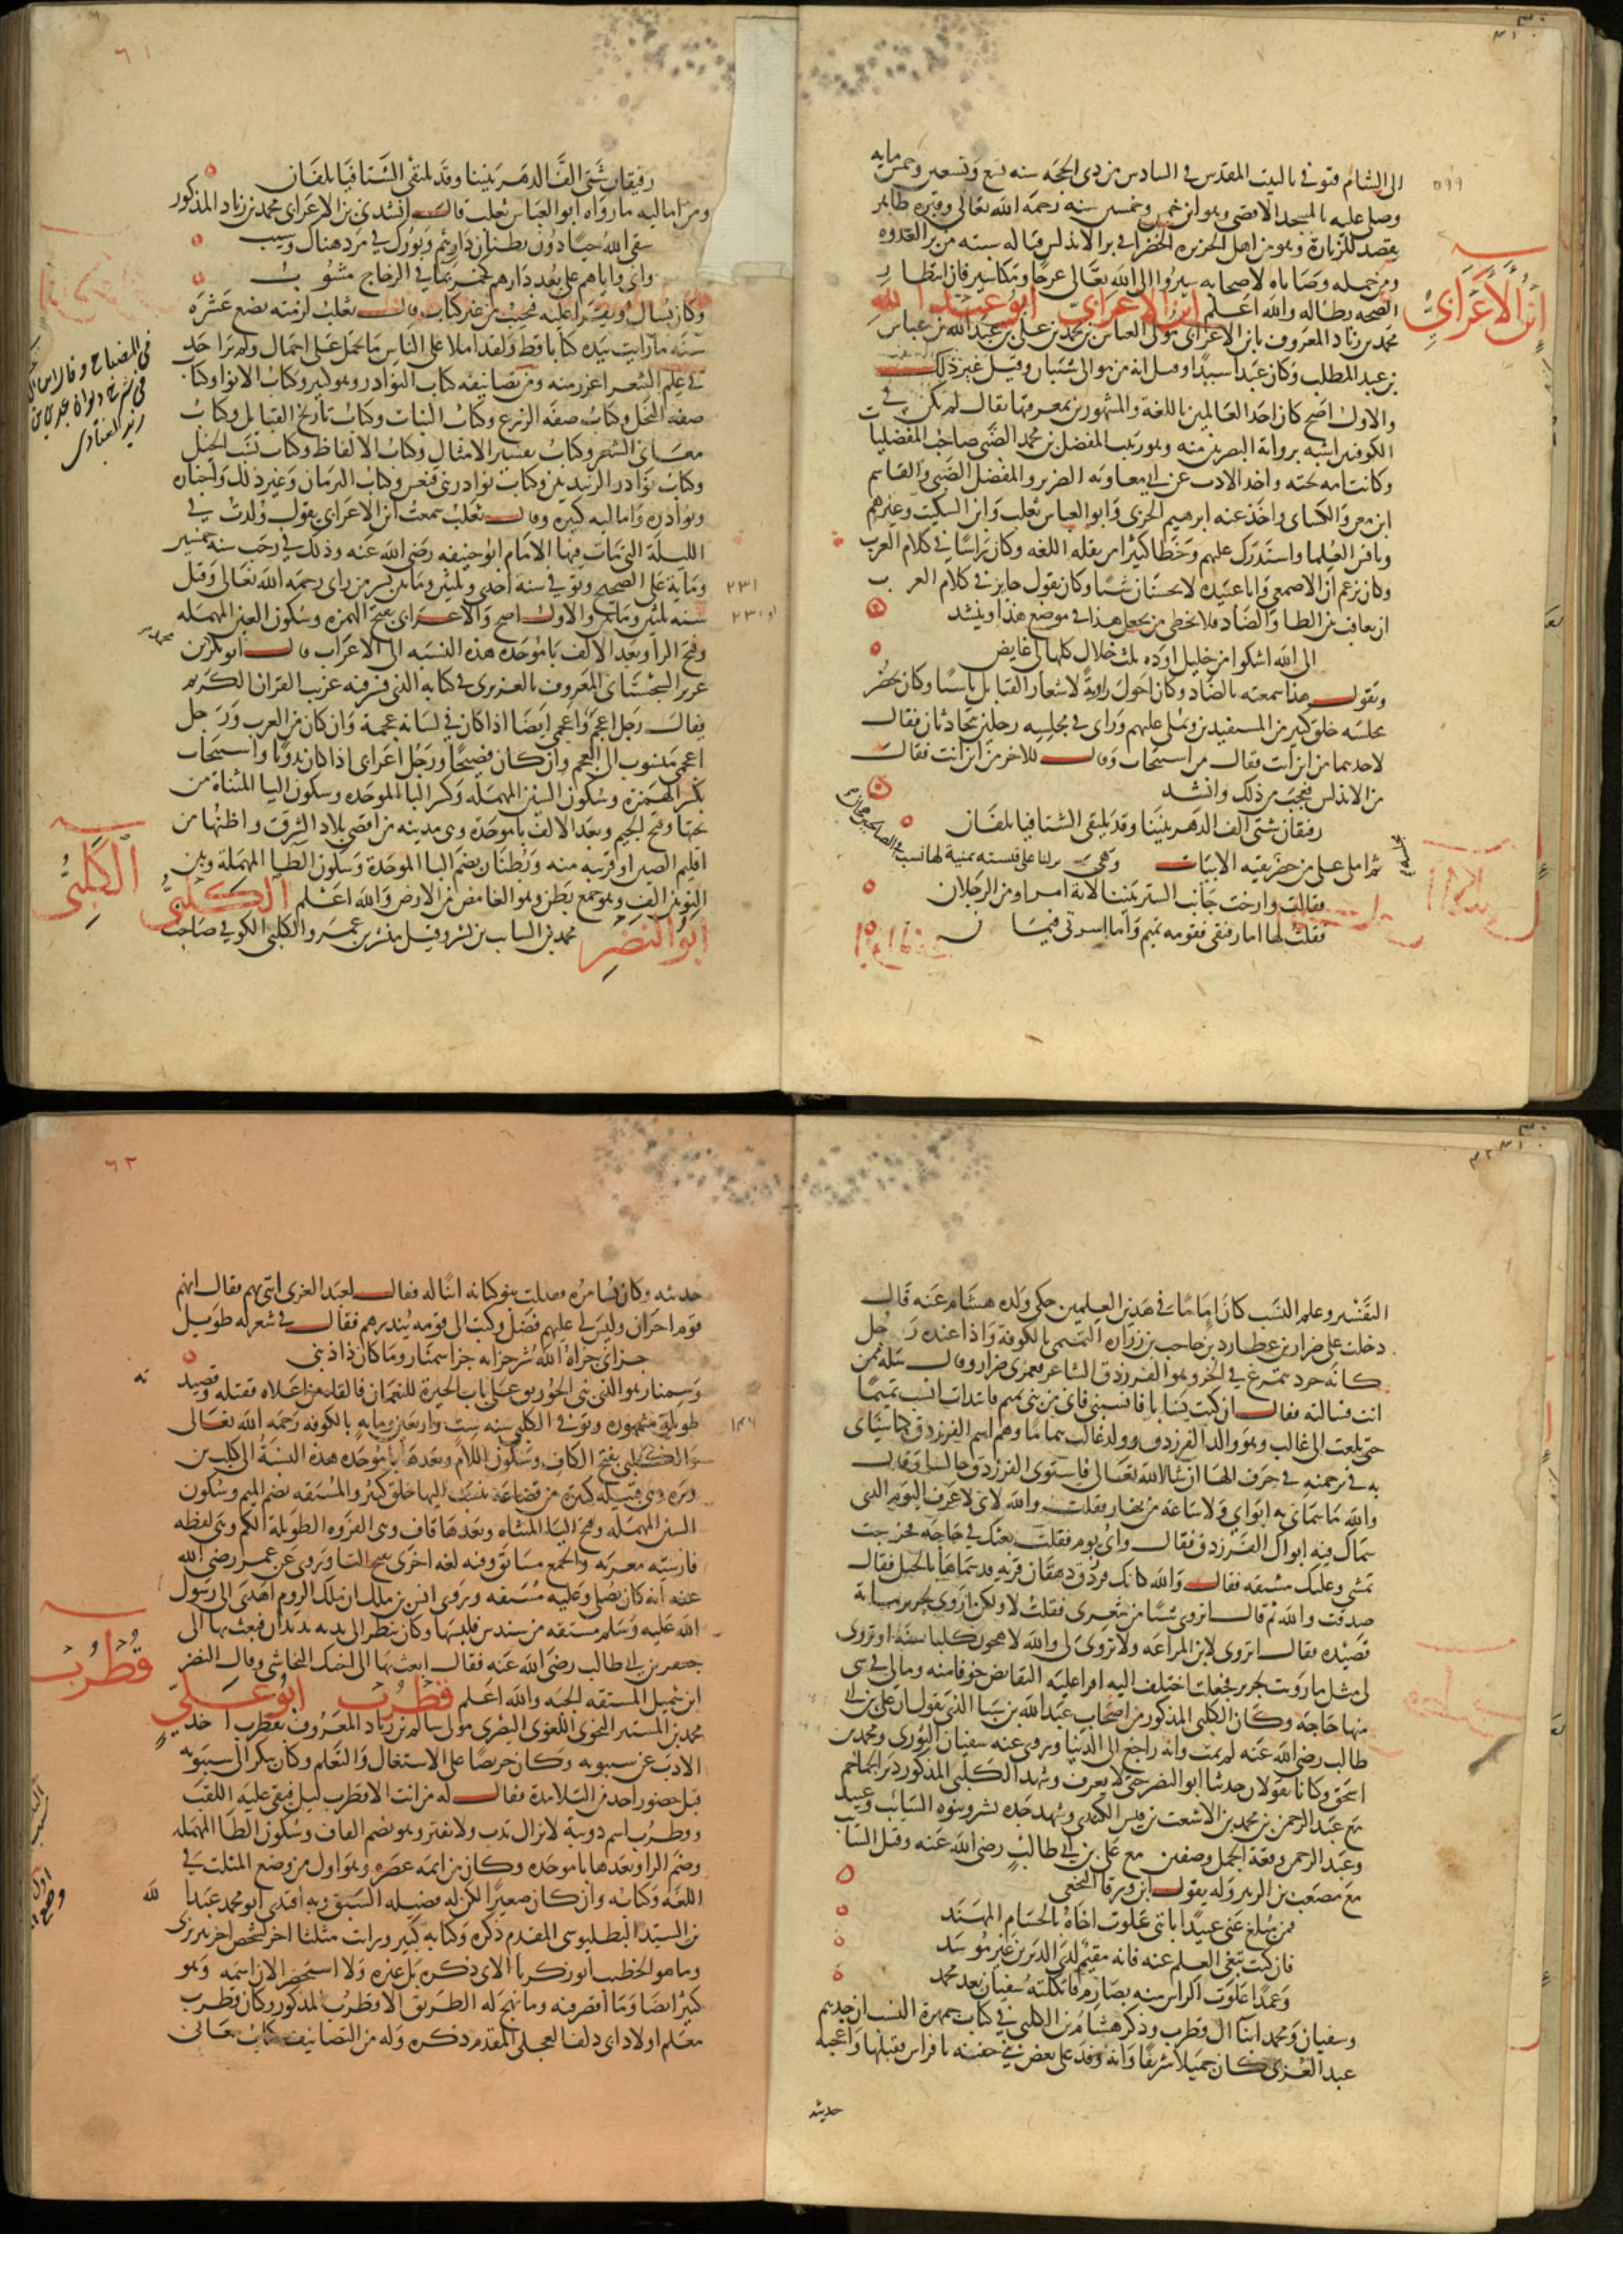 الى الشام فتوفي بالبيت المقدس في السادس من ذي الحجه سنه تسع وتسعين وخمس مايه
٥٩٩
وصلي عليه بالمسجد الاقصى وهو ابن خمس وخمسين سنه رحمه الله تعالى وقبره ظاهر
يقصد للزيارة وهو من اهل الجزيره الخضرا في بر الاندلس قباله سبته من بر العدوه
ومن جمله وصاياه لاصحابه سيروا الى الله تعالى عرجا ومكاسير فان انتظار
الصحه بطاله والله اعلم ابن الاعرابي ابو عبد الله
ابن الاعرابي
محمد بن زياد المعروف بابن الاعرابي مولى العباس بن محمد بن علي بن عبد الله بن عباس
بن عبد المطلب وكان عبدا سنديا وقيل انه من موالي شيبان وقيل غير ذلك
والاول اصح كان احد العالمين باللغة والمشهورين بمعرفتها يقال لم يكن في
الكوفيين اشبه برواية البصريين منه وهو ربيب المفضل بن محمد الضبي صاحب المفضليات
وكانت امه تحته واخذ الادب عن ابي معاويه الضرير والمفضل الضبي والقاسم
ابن معن والكساي واخذ عنه ابرهيم الحربي وابو العباس ثعلب وابن السكيت وغيرهم
وناقش العلما واستدرك عليهم وخطا كثيرا من نقله اللغه وكان راسا في كلام العرب
وكان يزعم ان الاصمعي وابا عبيده لا يحسنان شيا وكان يقول جايز في كلام العرب
ان يعاقب بين الظا والضاد فلا يخطي من يجعل هذا في موضع هذا وينشد
الى الله اشكوا من خليل اوده ثلث خلال كلها لي غايض
ويقول هذا سمعته بالضاد وكان احول راوية لاشعار القبايل ناسبا وكان يحضر
مجلسه خلق كثير من المستفيدين ويملي عليهم وراى في مجلسه رجلين يتحادثان فقال
لاحدهما من اين انت فقال من اسبيجاب وقال للاخر من اين انت فقال
من الاندلس فعجب من ذلك وانشد
رفيقان شتى الف الدهر بيننا وقد يلتقي الشتا فيا تلفان
ثم املى على من حضر بقيه الابيات وهي نزلنا على قيسيه يمنية لها نسب في الصالحين هجان
فقالت وارخت جانب الستر بيننا لاية امر او من الرجلان
فقلت لها اما رفيقي فقومه تميم واما اسرتي فيمان
٦١
رفيقان شتى الف الدهر بيننا وقد يلتقي الشتا فيا تلفان
ومن اماليه ما رواه ابو العباس ثعلب قال انشدني بن الاعرابي محمد بن زياد المذكور
سقى الله حيا دون بطنان دارهم وبورك في مرد هناك وشيب
واني واياهم على بعد دارهم كخمر بما في الزجاج مشوب
وكان يسال ويقرا عليه فيجيب من غير كتاب وقال ثعلب لزمته بضع عشره
سنه ما رايت بيده كتابا قط ولقد املا على الناس ما يحمل على اجمال ولم ير احد
في علم الشعر اغزر منه ومن تصانيفه كتاب النوادر وهو كبير وكتاب الانوا وكتاب
صفه النخل وكتاب صفه الزرع وكتاب النبات وكتاب تاريخ القبايل وكتاب
معاني الشعر وكتاب تفسير الامثال وكتاب الالفاظ وكتاب نسب الخيل
وكتاب نوادر الزبيديين وكتاب نوادر بني فقعس وكتاب الزمان وغير ذلك واخباره
ونوادره واماليه كثيره وقال ثعلب سمعت ابن الاعرابي يقول ولدت في
الليلة التي مات فيها الامام ابو حنيفه رضي الله عنه وذلك في رجب سنه خمسين
ومايه على الصحيح وتوفي في سنة احدى وثلثين وماتين بسر من راى رحمه الله تعالى وقيل
٢٣١
سنه ثلثين وماتين والاول اصح والاعرابي بفتح الهمزه وسكون العين المهمله
او ٢٣٠
وفتح الرا وبعد الالف با موحده هذه النسبه الى الاعراب قال ابو بكر بن
محمد بن
عزيز السجستاني المعروف بالعزيزي في كتابه الذي فسر فيه غريب القران الكريم
يقال رجل اعجم واعجمي ايضا اذا كان في لسانه عجمة وان كان من العرب ورجل
اعجمي منسوب الى العجم وان كان فصيحا ورجل اعرابي اذا كان بدويا واسبيجاب
بكسر الهمزة وسكون السين المهمله وكسر البا الموحده وسكون اليا المثناة من
تحتها وفتح الجيم وبعد الالف با موحدة وهي مدينه من اقصى بلاد الشرق واظنها من
اقليم الصين او قريبه منه وبطنان بضم البا الموحدة وسكون الطا المهملة وبين
النونين الف وهو جمع بطن وهو الغامض من الارض والله اعلم الكلبي
الكلبي
ابو النضر محمد بن السايب بن بشر وقيل مبشر بن عمرو الكلبي الكوفي صاحب
في المصباح وقال ابن
في شرح ديوان عدي بن
زيد العبادي
التفسير وعلم النسب كان اماما في هذين العلمين حكى ولده هشام عنه قال
دخلت على ضرار بن عطارد بن حاجب بن زراره التميمي بالكوفة واذا عنده رجل
كانه جرد يتمرغ في الخز وهو الفرزدق الشاعر فغمزني ضرار وقال سله ممن
انت فسالته فقال ان كنت نسابا فانسبني فاني من بني تميم فابتدات انسب تميما
حتى بلغت الى غالب وهو والد الفرزدق وولد غالب هماما وهو اسم الفرزدق كما سياتي
به في ترجمته في حرف الها ان شا الله تعالى فاستوى الفرزدق جالسا وقال
والله ما سماني به ابواي ولا ساعة من نهار فقلت والله لاني لاعرف اليوم الذي
سماك فيه ابوك الفرزدق فقال واي يوم فقلت بعثك في حاجه فخرجت
تمشي وعليك مستقه فقال والله كانك فرزدق دهقان قرية قد سماها بالجبل فقال
صدقت والله ثم قال اتروي شيا من شعري فقلت لا ولكن اروي لجرير ماية
قصيده فقال اتروي لابن المراغه ولا تروي لي والله لاهجون كلبا سنة او تروي
لي مثل ما رويت لجرير فجعلت اختلف اليه اقرا عليه النقايض خوفا منه وما لي في شي
منها حاجه وكان الكلبي المذكور من اصحاب عبد الله بن سبا الذي يقول ان علي بن ابي
طالب رضي الله عنه لم يمت وانه راجع الى الدنيا وروى عنه سفيان الثوري ومحمد بن
اسحق وكانا يقولان حدثنا ابو النضر حتى لا يعرف وشهد الكلبي المذكور دير الجماجم
مع عبد الرحمن بن محمد بن الاشعث بن قيس الكندي وشهد جده بشر وبنوه السايب وعبيد
وعبد الرحمن وقعة الجمل وصفين مع علي بن ابي طالب رضي الله عنه وقتل السايب
مع مصعب بن الزبير وله يقول ابن ورقا النخعي
فمن مبلغ عني عبيدا باني علوت اخاه بالحسام المهند
فان كنت تبغي العلم عنه فانه مقيم لدى الديرين غير موسد
وعمدا علوت الراس منه بصارم فاثكلته سفيان بعد محمد
وسفيان ومحمد ابنا ال قطرب وذكر هشام بن الكلبي في كتاب جمهرة النسب ان جدهم
عبد العزى كان جميلا شريفا وانه وفد على بعض بني جفنه بافراس فقبلها واعجبه
حديثه
٦٢
حديثه وكان يسامره فقتلت بنو كنانه ابنا له فقال لعبد العزى ايتني بهم فقال انهم
قوم احرار وليس لي عليهم فضل وكتب الى قومه ينذرهم فقال في شعر له طويل
جزاني جزاه الله شر جزايه جزا سنمار وما كان ذا ذنب
وسنمار هو الذي بنى الخورنق على باب الحيرة للنعمان فالقاه من اعلاه فقتله وقصيد
ته
طويلة مشهوره وتوفي الكلبي سنه ست واربعين ومايه بالكوفه رحمه الله تعالى
١٤٦
والكلبي بفتح الكاف وسكون اللام وبعدها با موحده هذه النسبة الى كلب بن
وبره وهي قبيله كبيره من قضاعة ينسب اليها خلق كثير والمستقه بضم الميم وسكون
السين المهمله وفتح التا المثناه وبعدها قاف وهي الفروه الطويلة الكم وهي لفظه
فارسيه معربه والجمع مساتق وفيه لغه اخرى بفتح التا وروي عن عمر رضي الله
عنه انه كان يصلي وعليه مستقه وروى انس بن ملك ان ملك الروم اهدى الى رسول
الله عليه وسلم مستقه من سندس فلبسها وكان ينظر الى يديه تذبذبان فبعث بها الى
جعفر بن ابي طالب رضي الله عنه فقال ابعث بها الى اخيك النجاشي وقال النضر
ابن شميل المستقه الجبه والله اعلم قطرب ابو علي
قطرب
محمد بن المستنير النحوي اللغوي البصري مولى سالم بن زياد المعروف بقطرب اخذ
الادب عن سيبويه وكان حريصا على الاشتغال والتعلم وكان يبكر الى سيبويه
قبل حضور احد من التلامذة فقال له ما انت الا قطرب ليل فبقي عليه اللقب
وقطرب اسم دويبة لا تزال تدب ولا تفتر وهو بضم القاف وسكون الطا المهمله
وضم الرا وبعدها با موحده وكان من ايمه عصره وهو اول من وضع المثلث في
اللغه وكتابه وان كان صغيرا لكن له فضيله السبق وبه اقتدى ابو محمد عبد الله
بن السيد البطليوسي المقدم ذكره وكتابه كبير ورايت مثلثا اخر لشخص اخر تبريزي
وما هو الخطيب ابو زكريا الاتي ذكره بل غيره ولا استحضر الان اسمه وهو
كبير ايضا وما اقصر فيه وما نهج له الطريق الا قطرب المذكور وكان قطرب
معلم اولاد ابي دلف العجلي المقدم ذكره وله من التصانيف كتاب معاني